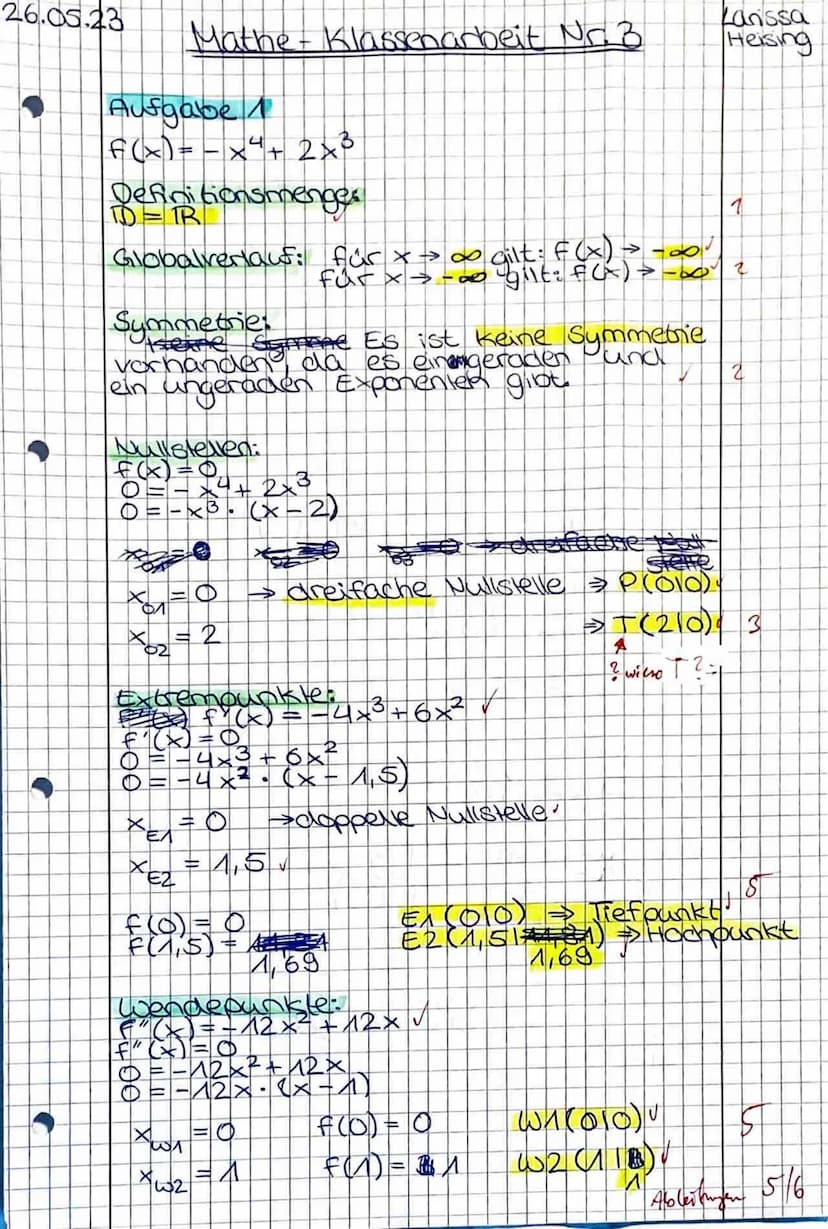 26.05.23
Mathe-Klassenarbeit Nr. 3
Larissa
Heising
Aufgabe 1
f(x) = - x⁴ + 2x³
Definitionsmenge:
ID = IR
1
Globalverlauf: für x → ∞ gilt: f(x) → -∞
für x → -∞ gilt: f(x) → -∞ 2
Symmetrie:
Es ist keine Symmetrie
vorhanden, da es ein geraden und
ein ungeraden Exponenten gibt. 2
Nullstellen:
f(x) = 0
0 = - x⁴ + 2x³
0 = -x³ · (x - 2)
→ dreifache Nullstelle
x₀₁ = 0 → dreifache Nullstelle ⇒ P(0|0)
x₀₂ = 2 ⇒ T(2|0) 3
? wieso T ?
Extrempunkte:
f'(x) = -4x³ + 6x² ✓
f'(x) = 0
0 = -4x³ + 6x²
0 = -4x² · (x - 1,5)
x_E1 = 0 → doppelte Nullstelle
x_E2 = 1,5 ✓
5
f(0) = 0 E1(0|0) ⇒ Tiefpunkt
f(1,5) = 1,69 E2(1,5|1,69) ⇒ Hochpunkt
Wendepunkte:
f''(x) = -12x² + 12x ✓
f''(x) = 0
0 = -12x² + 12x
0 = -12x · (x - 1)
x_W1 = 0 f(0) = 0 W1(0|0) ✓ 5
x_W2 = 1 f(1) = 1 W2(1|1) ✓
Ableitungen 5/6